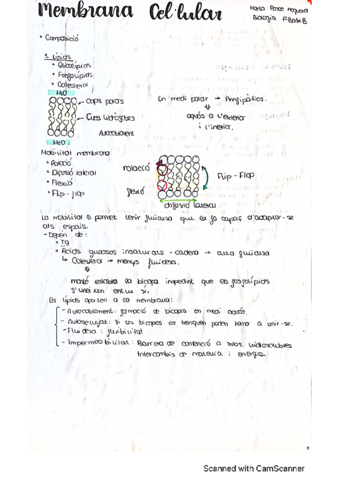 Membrana Cel·lular
Maria Pérez
Biologia 1r Batx B
• Composició
1. Lípids
• Glucolípids
• Fosfolípids
• Colesterol
H2O
Caps polars
Cues hidròfobes
Autoacoblament
H2O
En medi polar → Amfipàtics.
aquós a l'exterior
i l'interior.
Mobilitat membrana
• Rotació
• Difusió lateral
• Flexió
• Flip-flop
rotació
flexió
Flip-Flop
difusió lateral
La mobilitat li permet tenir fluïdesa que és la capaç d'adaptar-se
als espais.
- Depèn de:
• Tº
• Àcids grassos insaturats - cadena → alta fluïdesa
↳ Colesterol → menys fluïdesa.
manté estable la bicapa impedint que els fosfolípids
s'uneixin entre sí.
Els lípids aporten a la membrana:
- Autoacoblament: formació de bicapes en medi aquós.
- Autosegellat: si les bicapes es trenquen poden tornar a unir-se.
- Fluïdesa: flexibilitat
- Impermeabilitat: Barrera de contenció a subs. hidrosolubles
Intercanvis de matèria i energia.
1
Scanned with CamScanner